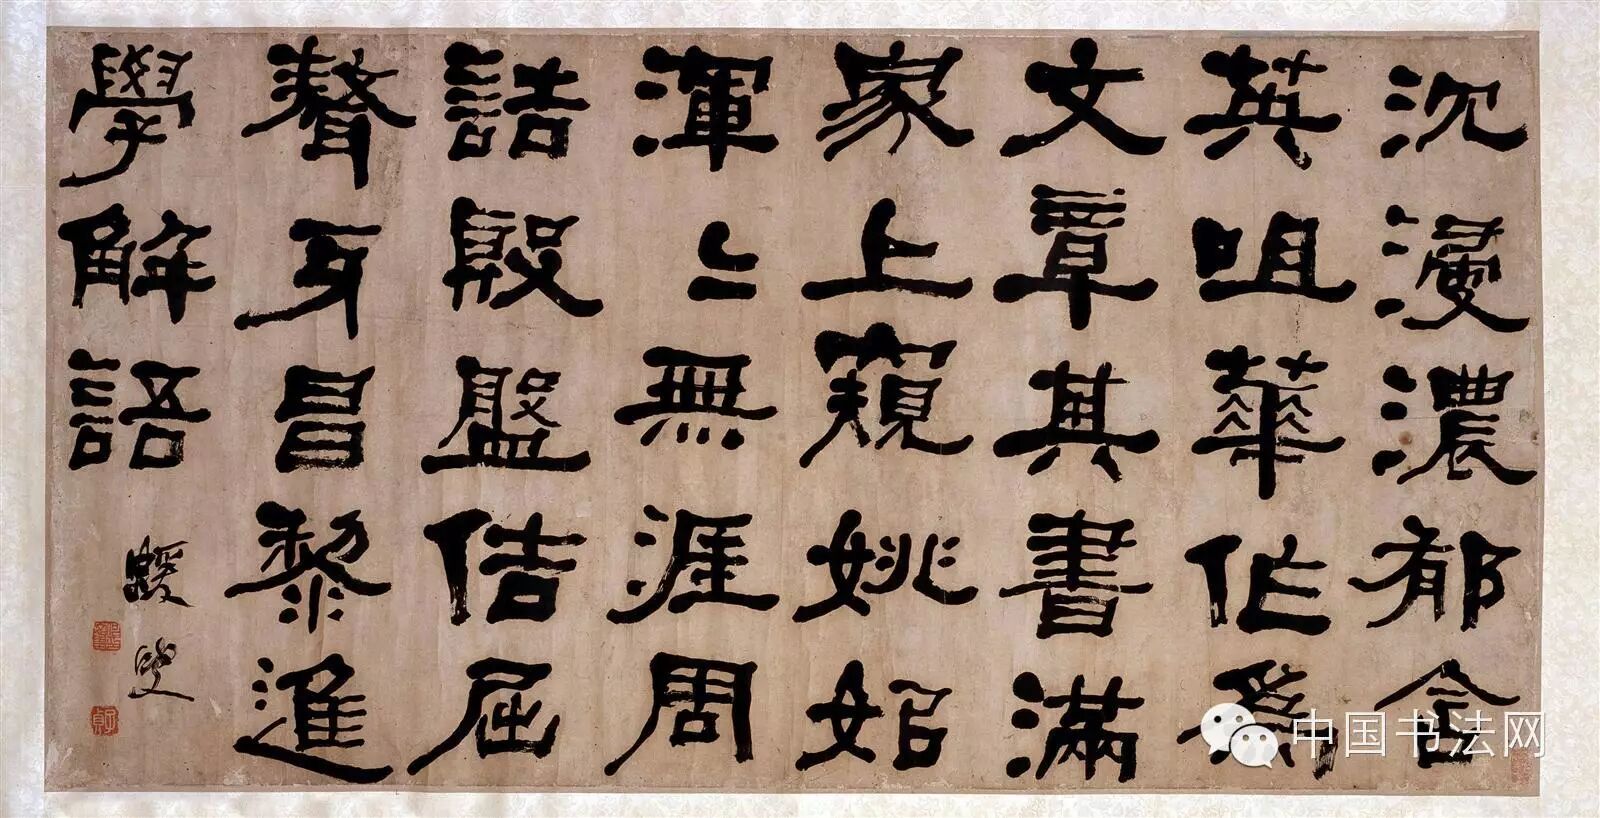 沈浸濃郁含
英咀華作為
文章其書滿
家上窺姚姒
渾〻無涯周
誥殷盤佶屈
聱牙昌黎進
學解語
蝯叟
子貞
中国书法网